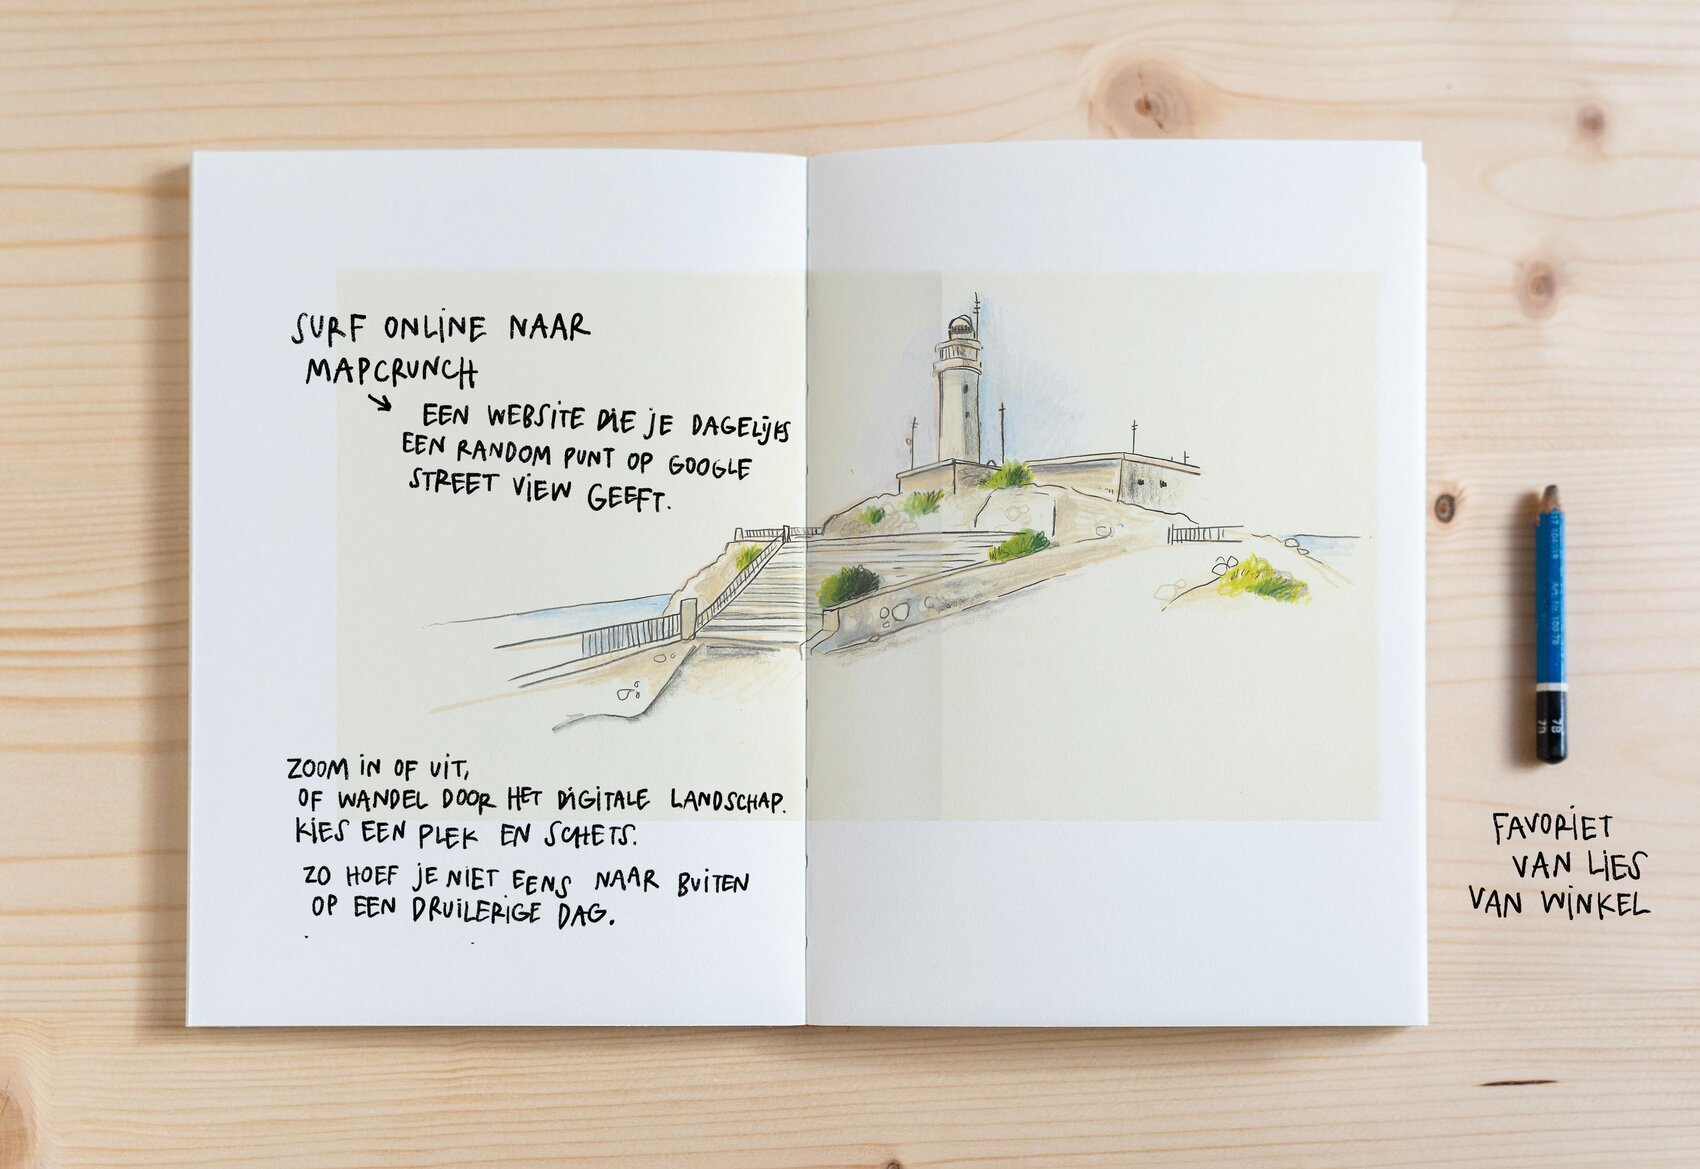 SURF ONLINE NAAR
MAPCRUNCH
EEN WEBSITE DIE JE DAGELIJKS
EEN RANDOM PUNT OP GOOGLE
STREET VIEW GEEFT.
ZOOM IN OF UIT,
OF WANDEL DOOR HET DIGITALE LANDSCHAP.
KIES EEN PLEK EN SCHETS.
ZO HOEF JE NIET EENS NAAR BUITEN
OP EEN DRUILERIGE DAG.
7B
FAVORIET
VAN LIES
VAN WINKEL